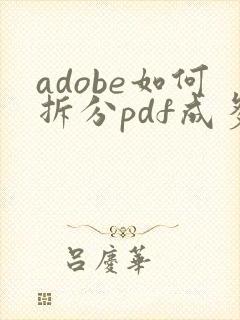 adobe如何
拆分pdf成多
吕慶華